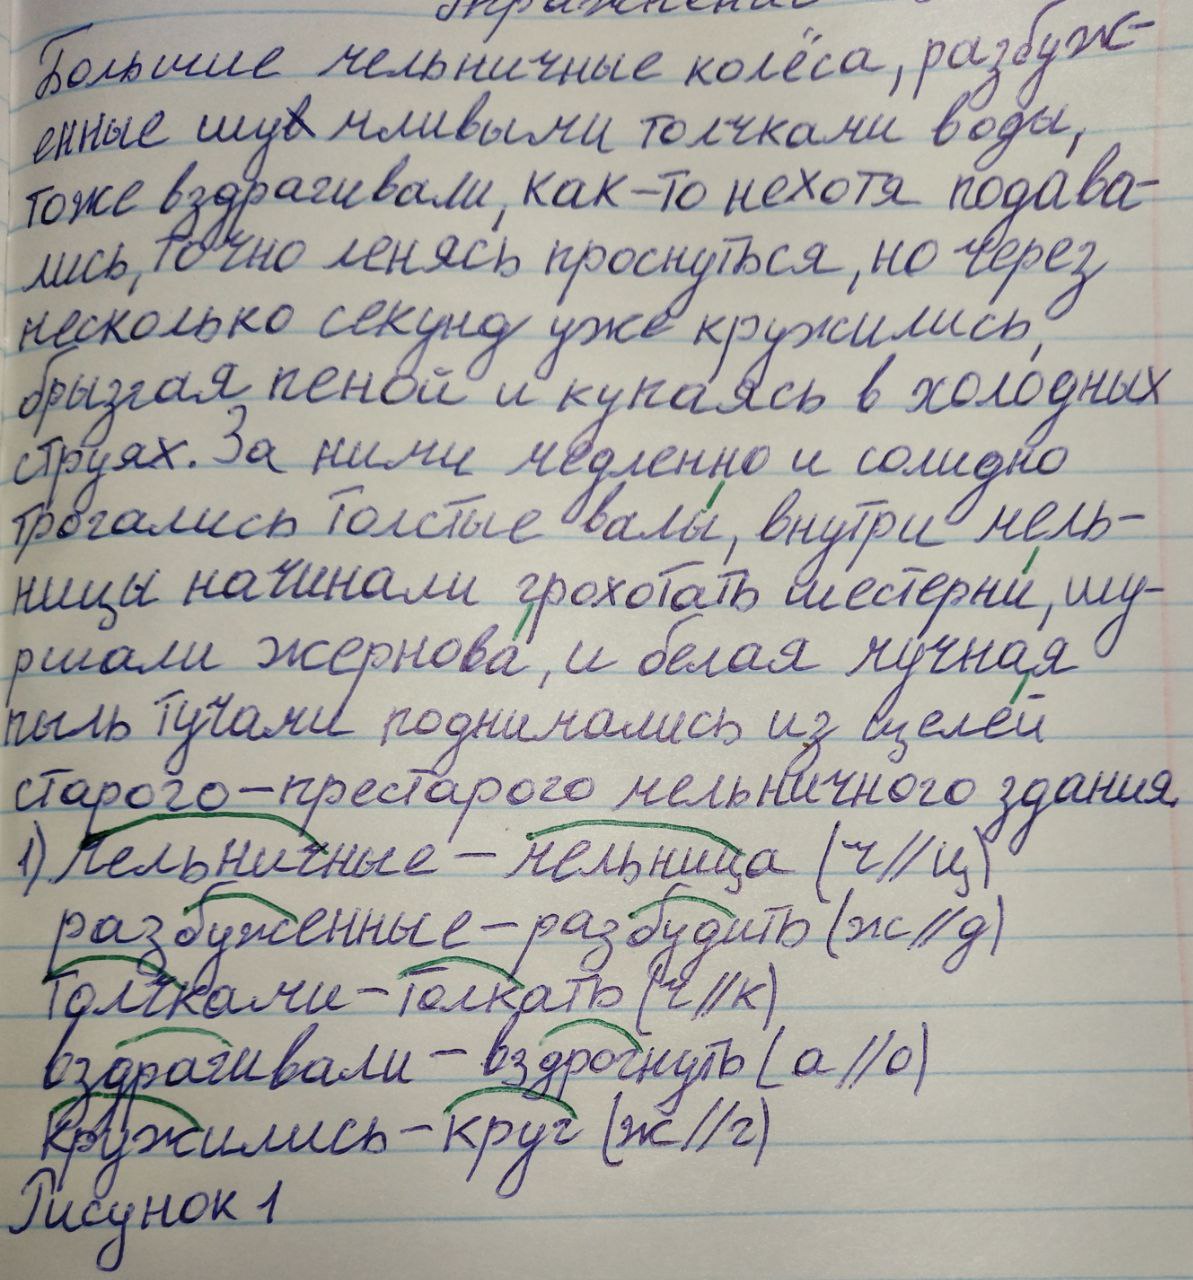 Упражнение
Большие мельничные колёса, разбуж-
енные шумливыми толчками воды,
тоже вздрагивали, как-то нехотя подава-
лись, точно ленясь проснуться, но через
несколько секунд уже кружились,
брызгая пеной и купаясь в холодных
струях. За ними медленно и солидно
трогались толстые валы, внутри мель-
ницы начинали грохотать шестерни, шу-
ршали жернова, и белая мучная
пыль тучами поднимались из щелей
старого-престарого мельничного здания.
1) Мельничные - мельница (ч//ц)
разбуженные - разбудить (ж//д)
Толчками - толкать (ч//к)
вздрагивали - вздрогнуть (а//о)
кружились - круг (ж//г)
Рисунок 1